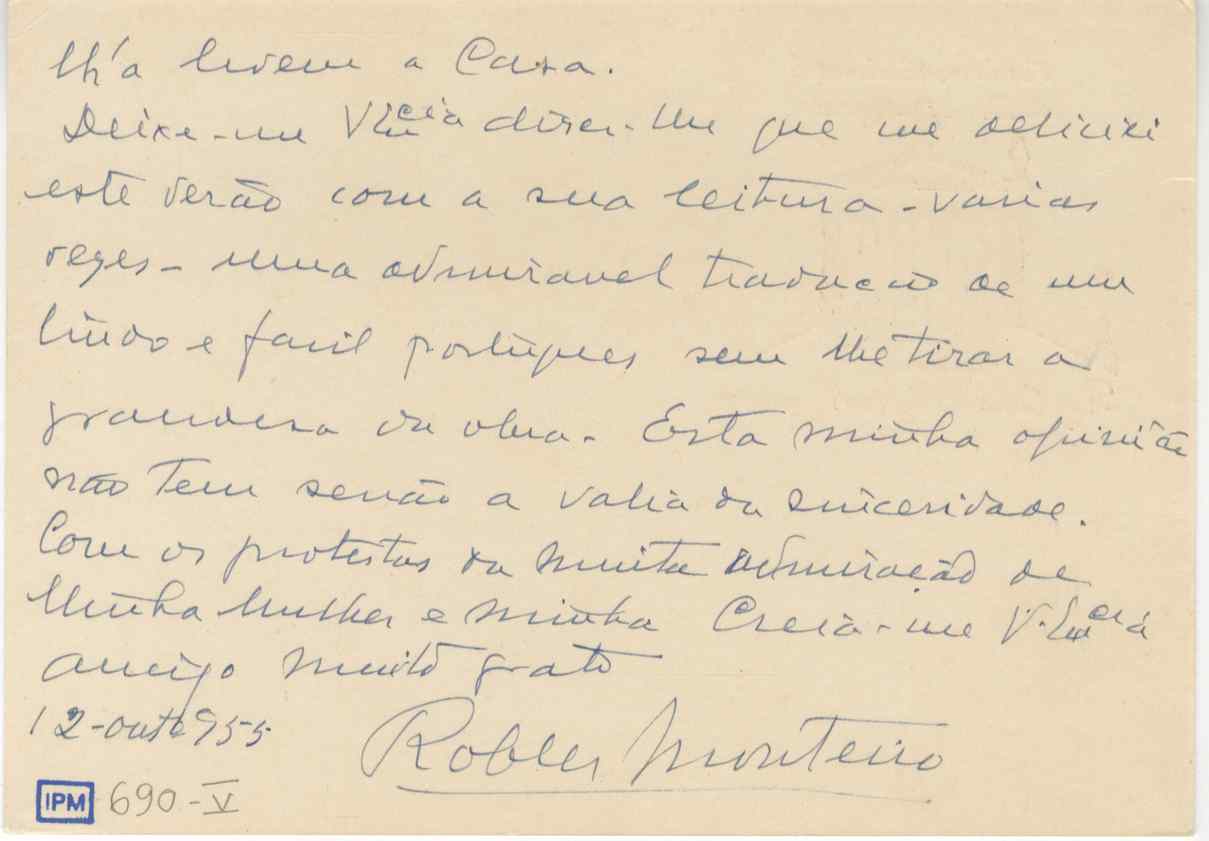 lh'a levem a Casa.
Deixe-me V Emcia dizer-lhe que me deliciei
este verão com a sua leitura - varias
vezes - uma admiravel traducão de um
lindo e facil portugues sem lhe tirar a
grandeza da obra. Esta minha opinião
não tem senão a valia da sinceridade.
Com os protestos da muita admiração de
Minha Mulher e minha Creia-me V. Emcia
amigo muito grato
12-outo 955
Robles Monteiro
IPM 690-V